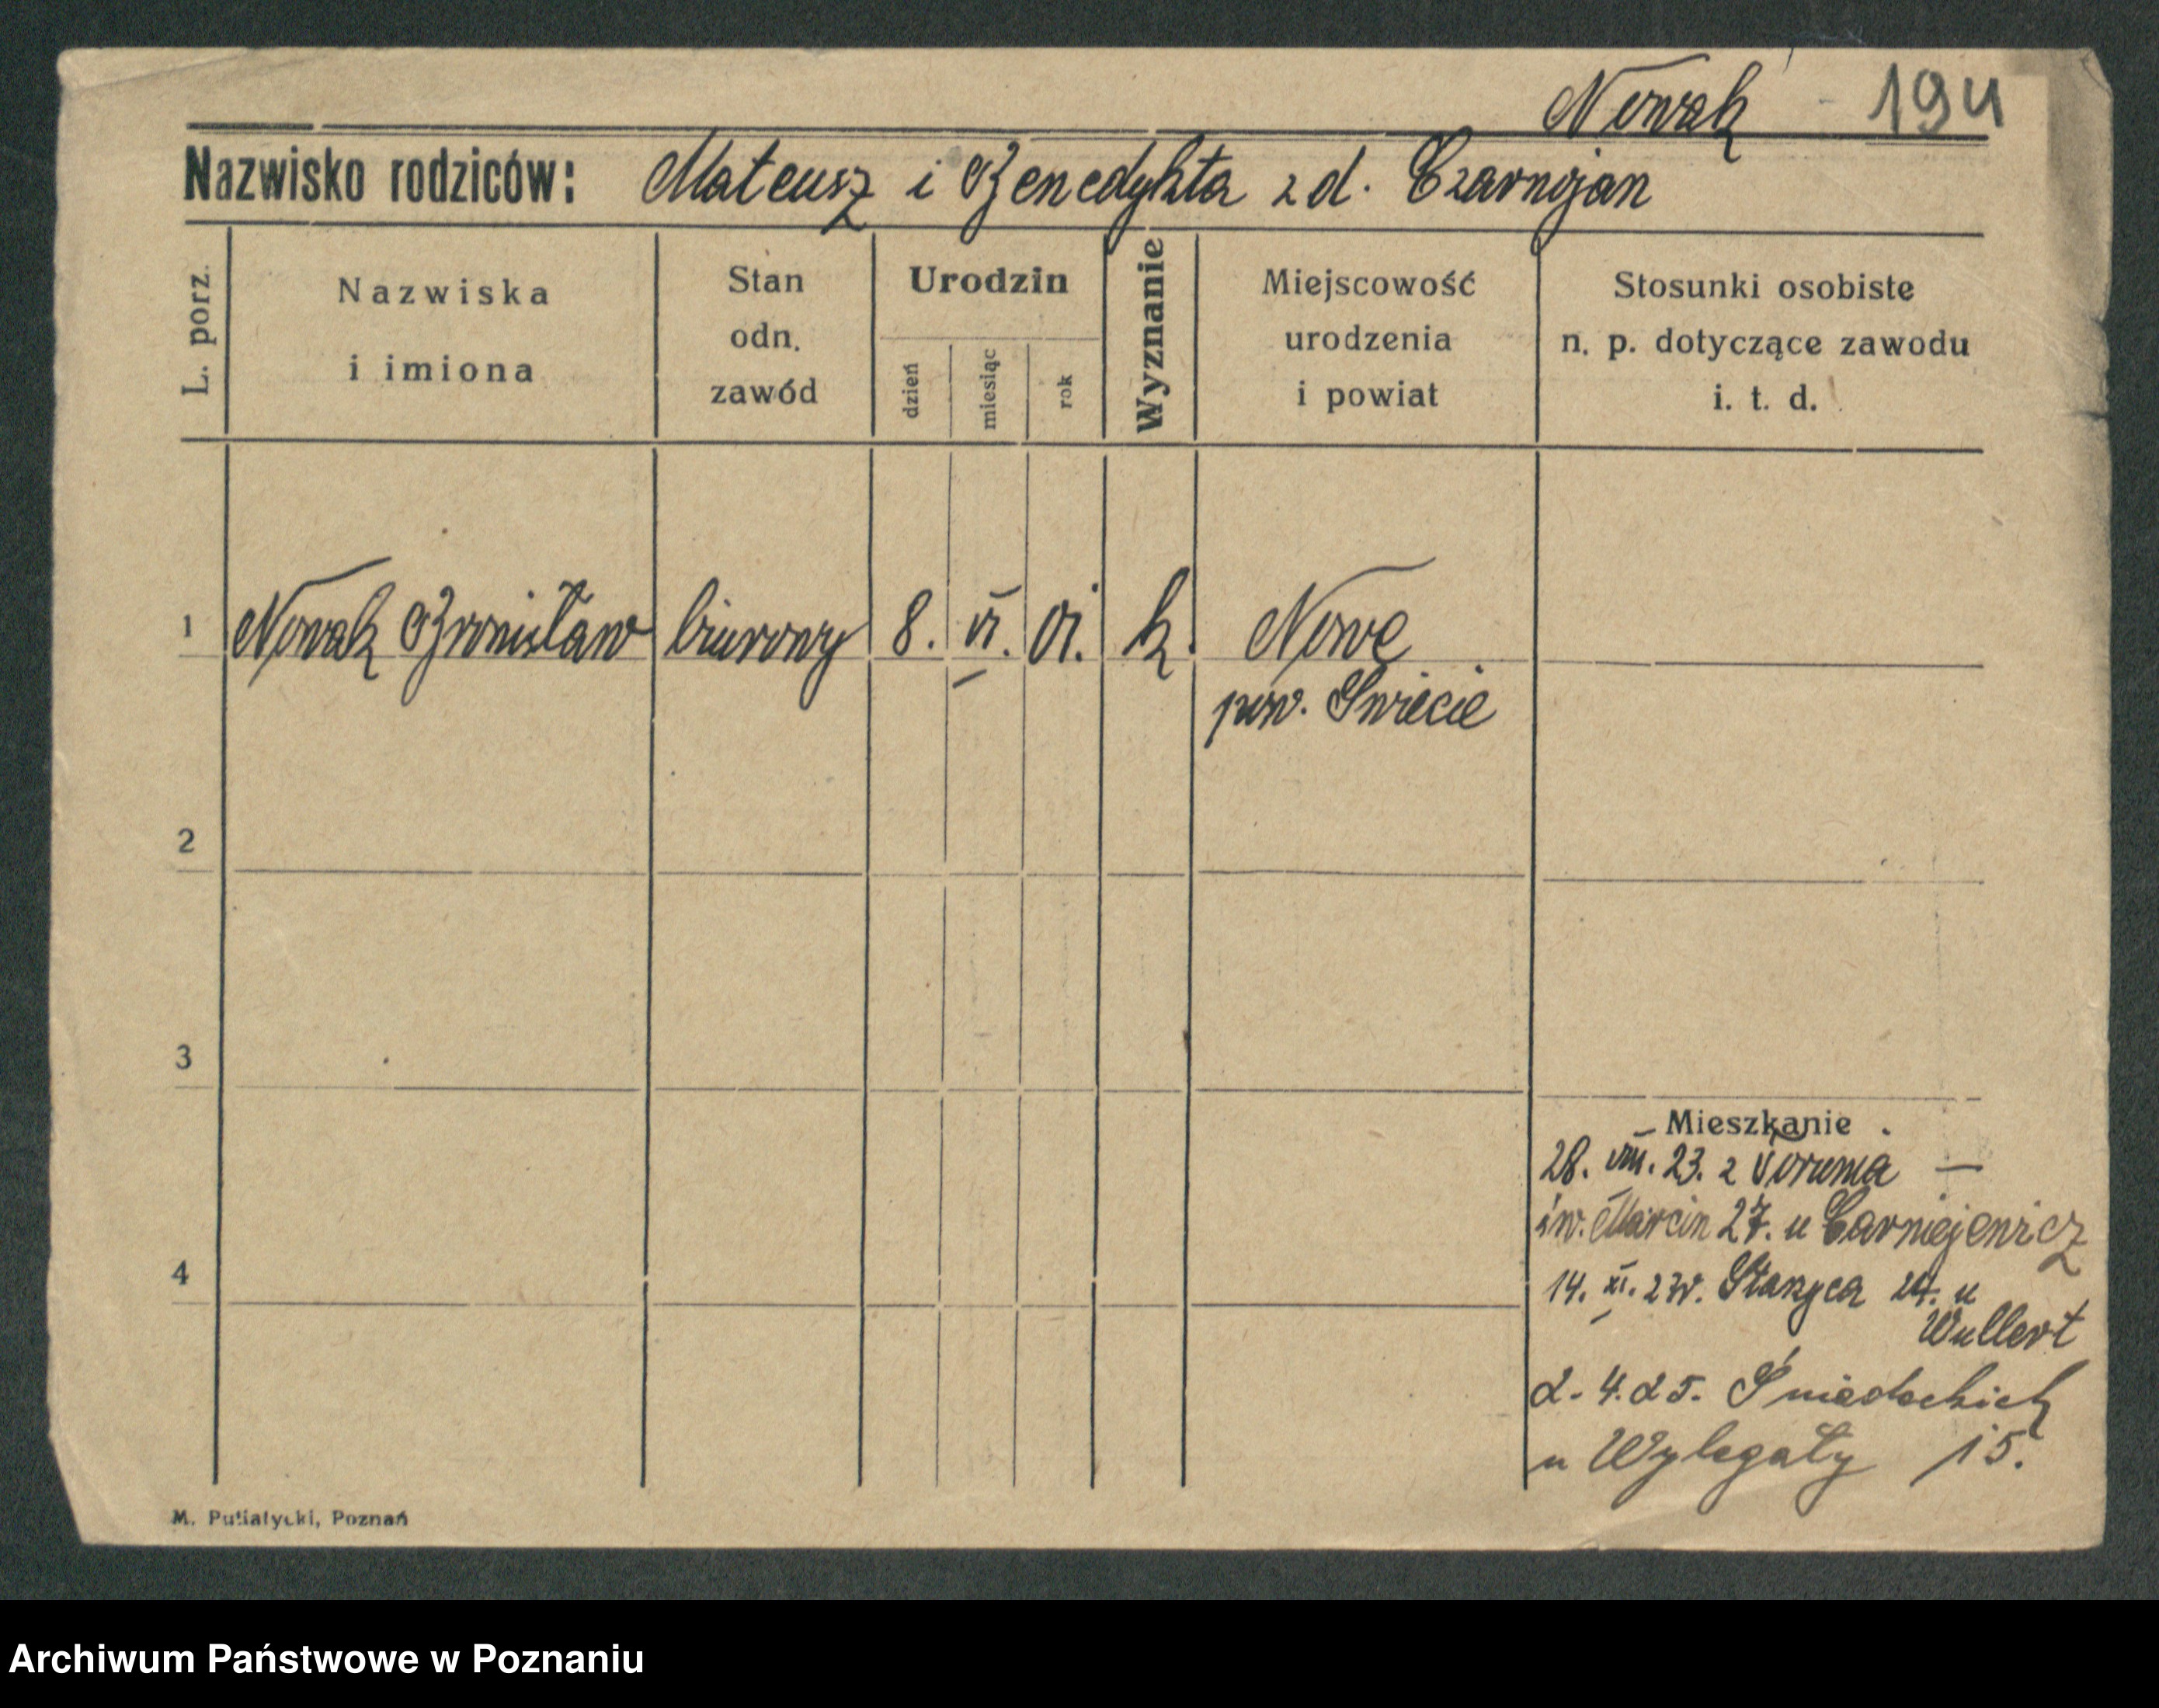 Nowak 194
Nazwisko rodziców: Mateusz i Benedykta z d. Czarnojan
L. porz.
Nazwiska
i imiona
Stan
odn.
zawód
Urodzin
dzień
miesiąc
rok
Wyznanie
Miejscowość
urodzenia
i powiat
Stosunki osobiste
n. p. dotyczące zawodu
i. t. d.
1 Nowak Bronisław biurowy 8. VI. 01. k. Nowe
pow. Swiecie
2
3
4
Mieszkanie
28. VIII. 23. z Torunia —
św. Marcin 27. u
14. XI. 23 24. u
Wullert
2. 4. 25. Śniadeckich
u Wylegały 15.
M. Putiatycki, Poznań
Archiwum Państwowe w Poznaniu